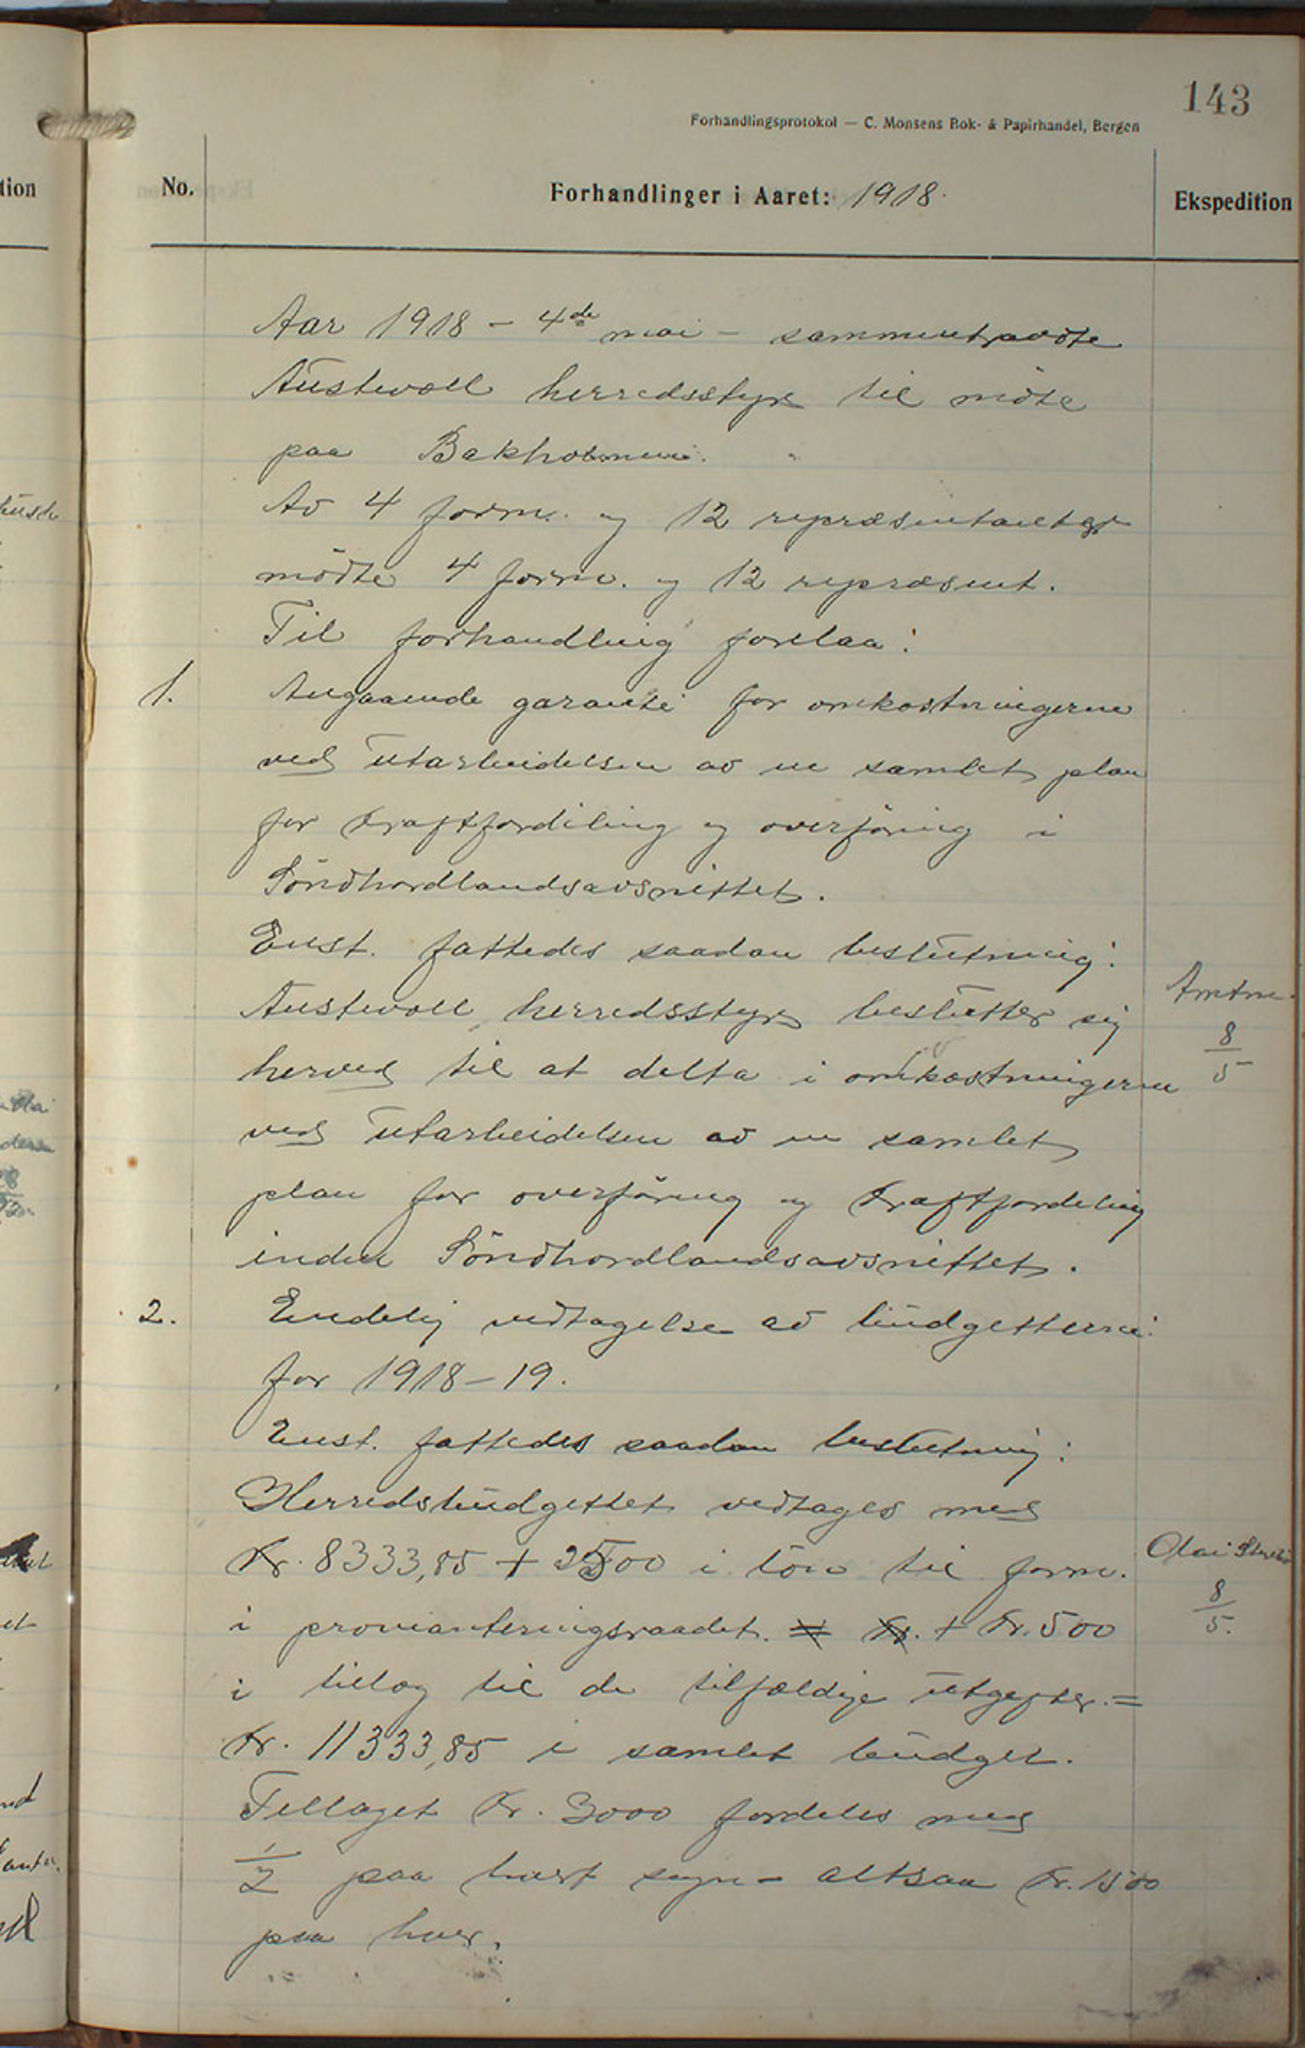 143
Forhandlingsprotokol — C. Monsens Bok- & Papirhandel, Bergen
tion
No.
Forhandlinger i Aaret: 1918.
Ekspedition
Aar 1918 - 4de mai - sammentraadte
Austevoll herredsstyre til möte
paa Bakholmen.
Av 4 form. og 12 repræsentanter
mödte 4 form. og 12 repræsent.
Til forhandling forelaa:
1. Angaaende garanti for omkostningerne
ved utarbeidelsen av en samlet plan
for kraftfordeling og overföring i
Söndhordlandsavsnittet.
Enst. fattedes saadan beslutning:
Austevoll herredsstyre beslutter sig
herved til at delta i omkostningerne
ved utarbeidelsen av en samlet
plan for overföring og kraftfordeling
inden Söndhordlandsavsnittet.
Amtm.
8/5
2. Endelig vedtagelse av budgetterne
for 1918-19.
Enst. fattedes saadan beslutning:
Herredsbudgettet vedtages med
Kr. 8333,85 + 2500 i lön til form.
i provianteringsraadet. + Kr. 500
i tillæg til de tilfældige utgifter. =
Kr. 11333,85 i samlet budget.
Tillæget Kr. 3000 fordeles med
1/2 paa hvert sogn - altsaa Kr. 1500
paa hver.
Olai
8/5.